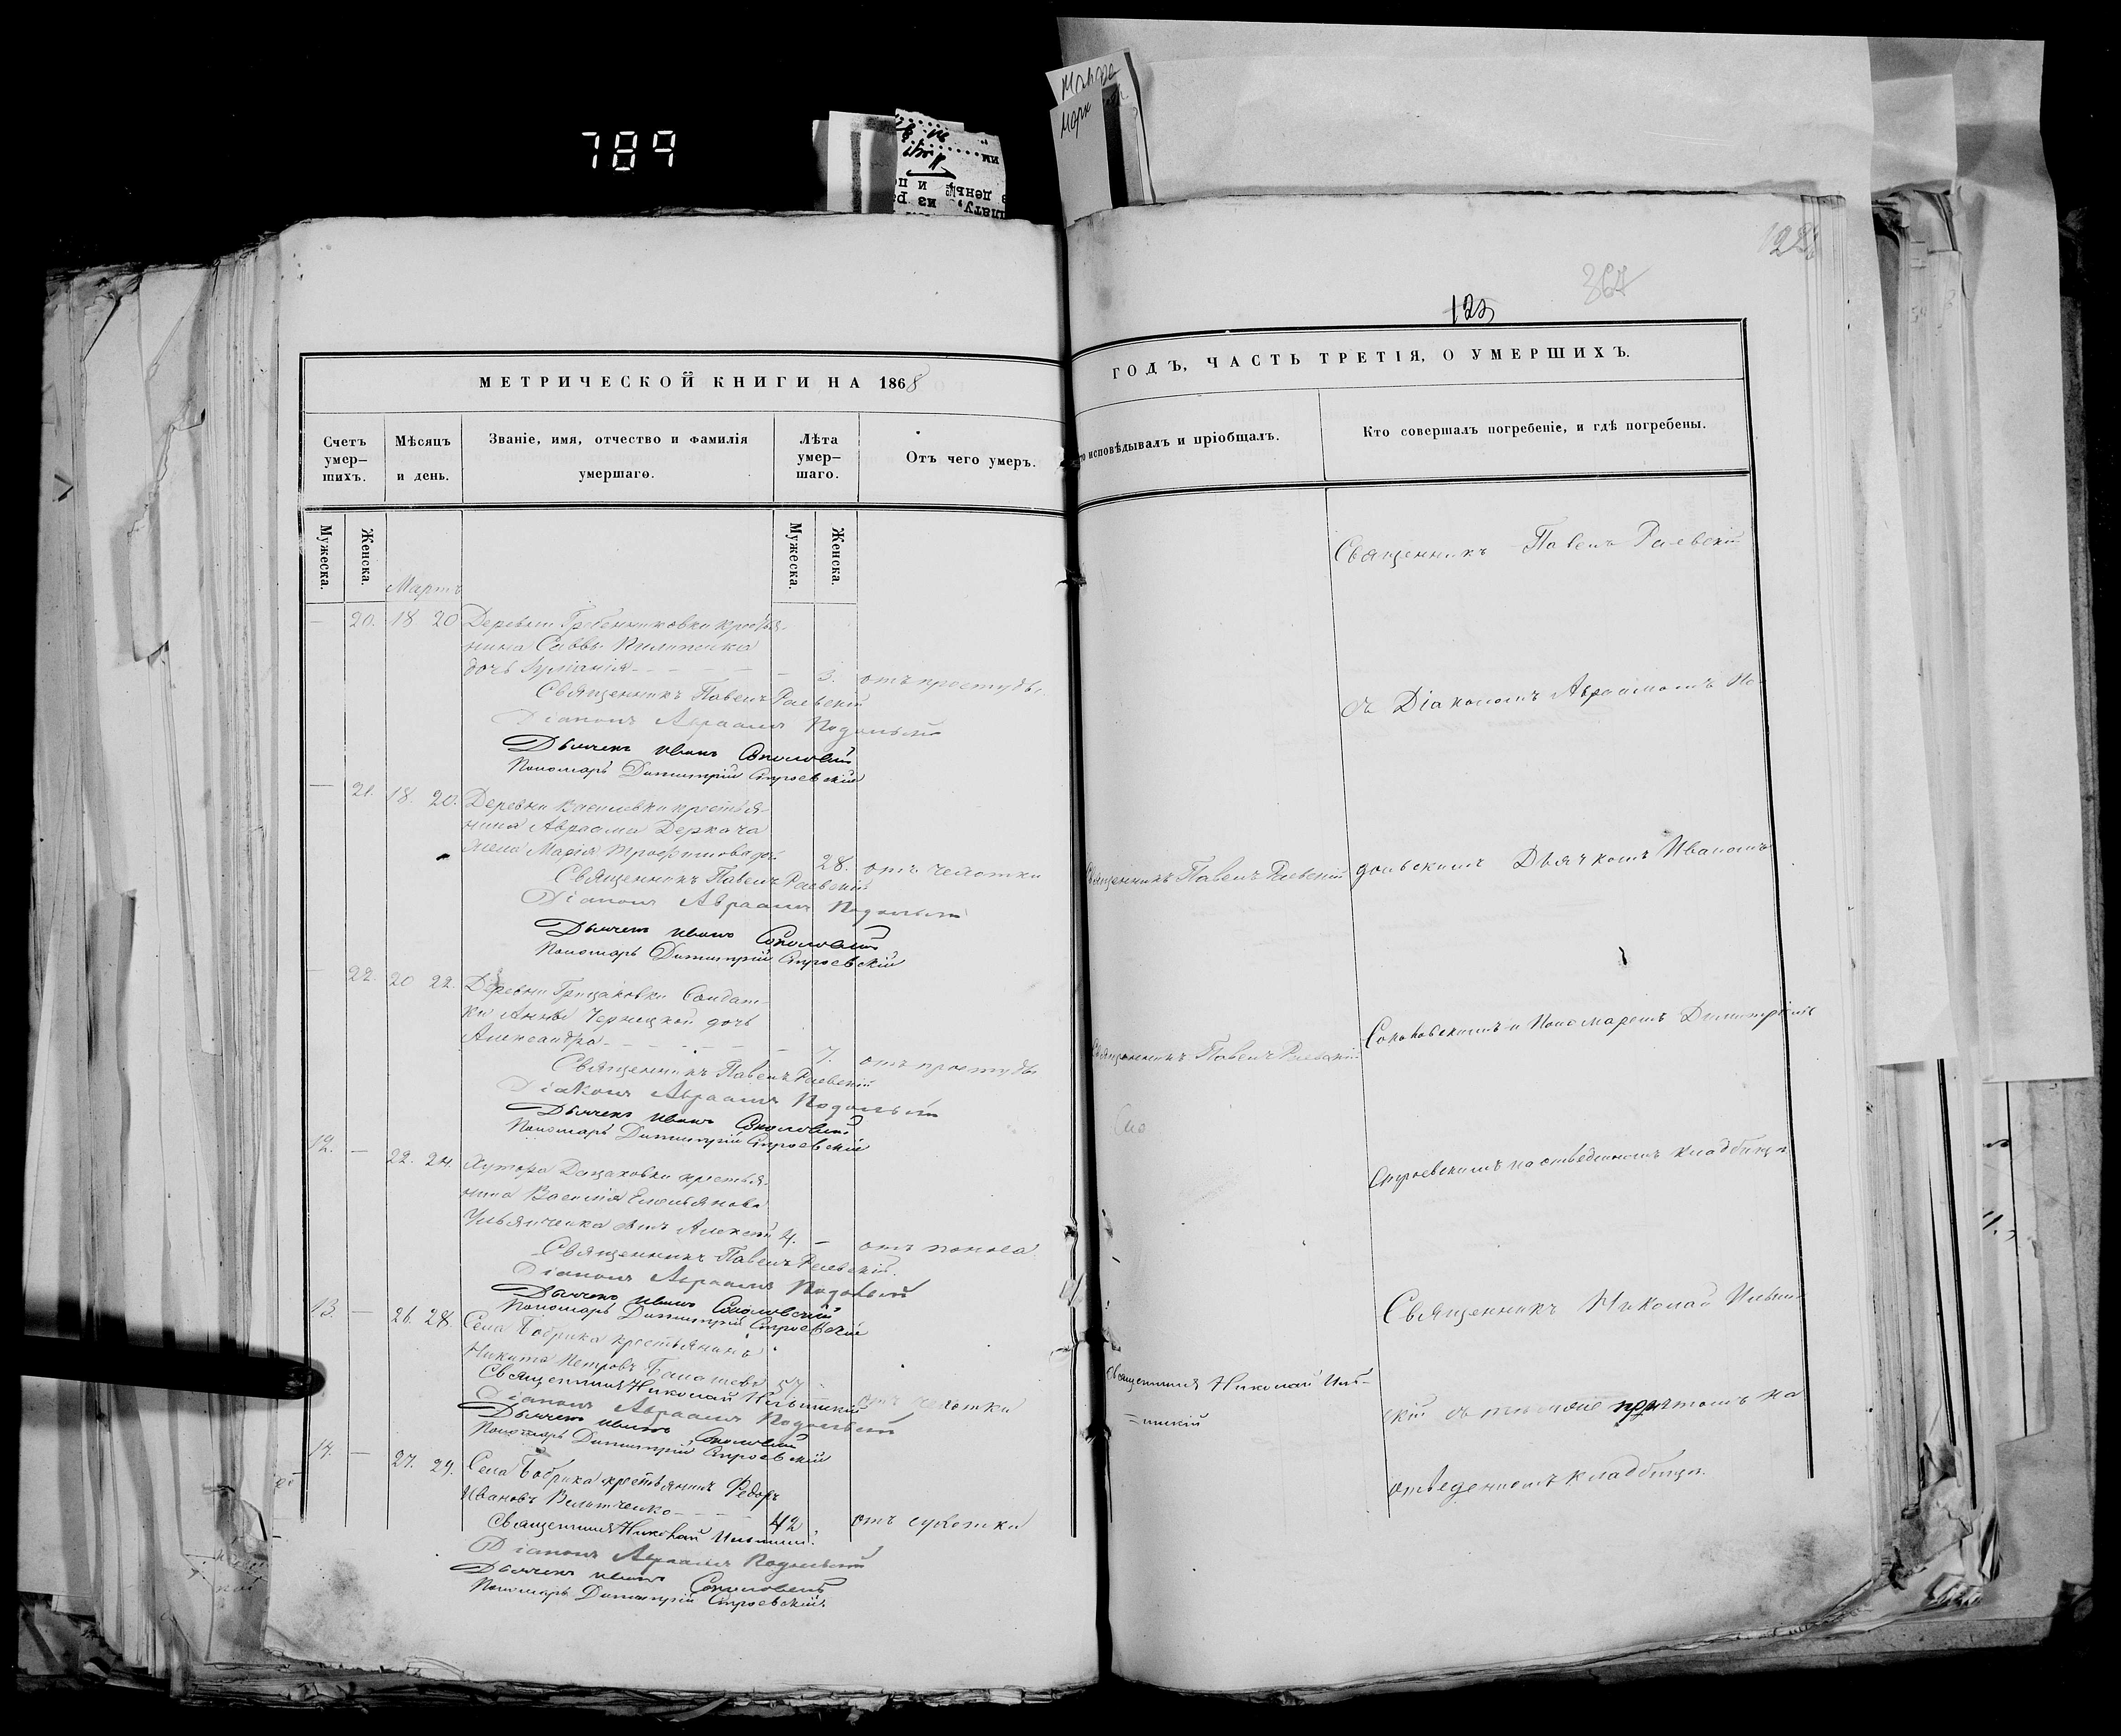 789
МЕТРИЧЕСКОЙ КНИГИ НА 1868
Счетъ умер-
шихъ.
Мѣсяцъ
и день.
Званіе, имя, отчество и фамилія
умершаго.
Лѣта
умер-
шаго.
Отъ чего умеръ.
Мужеска.
Женска.
Мужеска.
Женска.
Мартъ
— 20. 18 20 Деревни Гребенниковки крестья-
нина Саввы
дочь — 3. отъ простуды.
Священникъ Павелъ Раевскій
Діаконъ Авраамъ Подольскій
Дьячекъ Иванъ Соколовскій
Пономарь Димитрій Строевскій
— 21. 18. 20. Деревни Василевки крестья-
нина Авраама Деркача
жена Марія Трофимова 28. отъ чахотки
Священникъ Павелъ Раевскій
Діаконъ Авраамъ Подольскій
Дьячекъ Иванъ Соколовскій
Пономарь Димитрій Строевскій
22. 20 22. Деревни Грицаковки Солдат-
ки Анны Черницкой дочь
Александра — 7. отъ простуды
Священникъ Павелъ Раевскій
Діаконъ Авраамъ Подольскій
Дьячекъ Иванъ Соколовскій
Пономарь Димитрій Строевскій
12. — 22. 24. Хутора крестья-
нина Василія Емельянова
Ульянченка сынъ Алексій 4. — отъ поноса
Священникъ Павелъ Раевскій.
Діаконъ Авраамъ Подольскій
Дьячекъ Иванъ Соколовскій
Пономарь Димитрій Строевскій
13. — 26. 28. Села Бобрика крестьянинъ
Никита Петровъ 57 отъ чахотки
Священникъ Николай Ильинскій
Діаконъ Авраамъ Подольскій
Дьячекъ Иванъ Соколовскій
Пономарь Димитрій Строевскій
14. — 27. 29. Села Бобрика крестьянинъ Федоръ
Ивановъ 42 отъ сухотки
Священникъ Николай Ильинскій
Діаконъ Авраамъ Подольскій
Дьячекъ Иванъ Соколовскій
Пономарь Димитрій Строевскій
367
125
ГОДЪ, ЧАСТЬ ТРЕТІЯ, О УМЕРШИХЪ.
то исповѣдывалъ и пріобщалъ.
Кто совершалъ погребеніе, и гдѣ погребены.
Священникъ Павелъ Раевскій
съ Діакономъ Авраамомъ По-
Священникъ Павелъ Раевскій
дольскимъ Дьячкомъ Иваномъ
Священникъ Павелъ Раевскій
Соколовскимъ и Пономаремъ Димитріемъ
Строевскимъ на отведенномъ кладбищѣ
Священникъ Николай Ильин-
Священникъ Николай Иль-
инскій
скій съ причтомъ на
отведенномъ кладбищѣ.